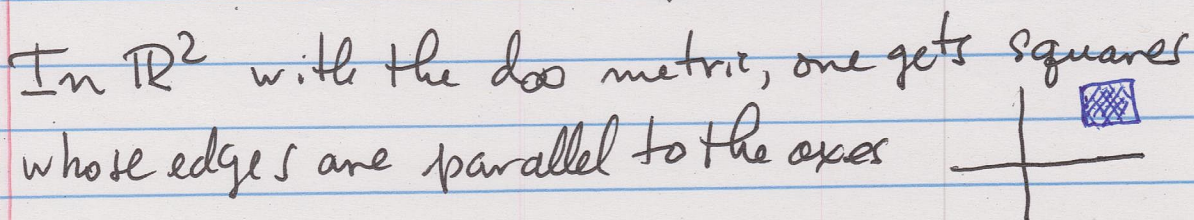 In ℝ² with the d∞ metric, one gets squares
whose edges are parallel to the axes